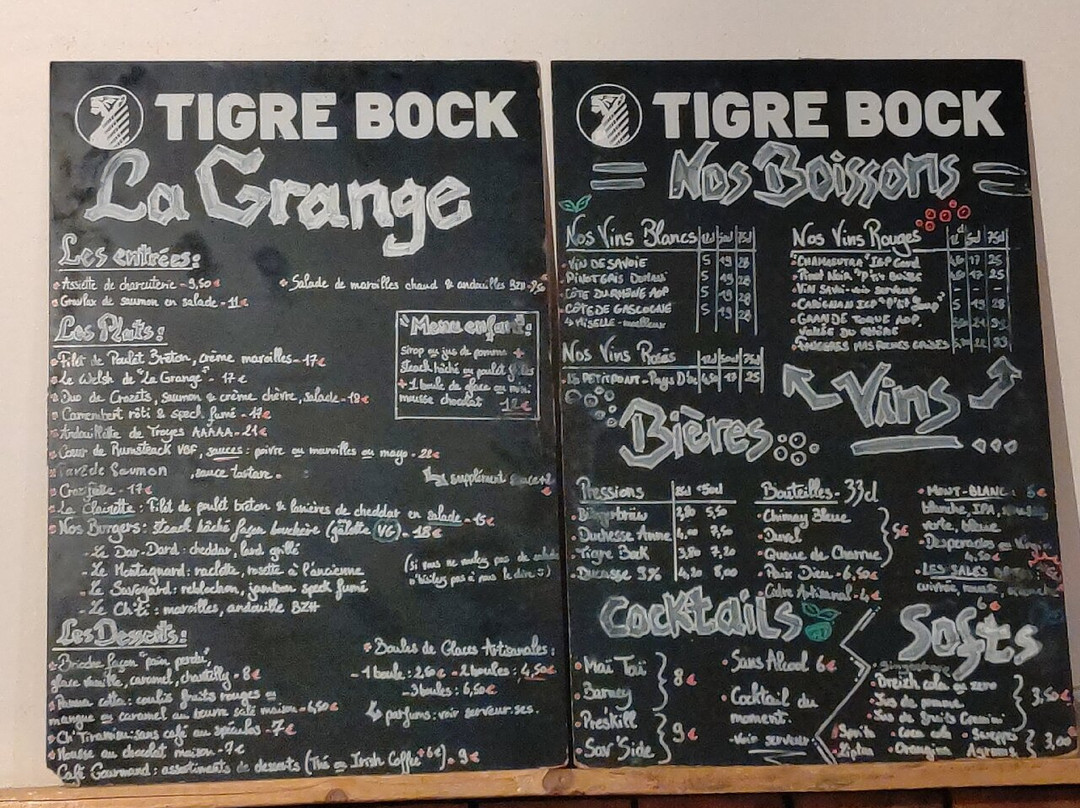 TIGRE BOCK
La Grange
Les entrées:
Assiette de charcuterie - 9,50€
Salade de maroilles chaud & andouilles BZH
Gravlax de saumon en salade - 11€
Les Plats:
Filet de Poulet Breton, crème maroilles - 17€
Le Welsh de "La Grange" - 17€
Duo de Crozets, saumon & crème chèvre, salade - 18€
Camembert rôti & speck fumé - 17€
Andouillette de Troyes AAAAA - 21€
Cœur de Rumsteack VBF, sauces: poivre ou maroilles ou mayo - 22€
Saumon, sauce tartare.
supplément sauce
- 17€
La Clairette: Filet de poulet breton & lanières de cheddar en salade - 15€
Nos Burgers: steack hâché façon bouchère (galette VG) - 18€
- Le Dar-Dard: cheddar, lard grillé
- Le Montagnard: raclette, rosette à l'ancienne
- Le Savoyard: reblochon, jambon speck fumé
- Le Ch'ti: maroilles, andouille BZH
(si vous ne voulez pas de
n'hésitez pas à nous le dire :))
"Menu enfant":
Sirop ou jus de pomme +
steack hâché ou poulet frites
+ 1 boule de glace ou mini
mousse chocolat 12€
Les Desserts:
Brioche façon "pain perdu",
glace vanille, caramel, chantilly - 8€
Panna cotta: coulis fruits rouges ou
mangue ou caramel au beurre salé maison - 6,50€
Ch'Tiramisu: sans café au spéculos - 7€
Mousse au chocolat maison - 7€
Café Gourmand: assortiments de desserts (Thé ou Irish Coffee +6€) - 9€
Boules de Glaces Artisanales:
- 1 boule: 2,50€ - 2 boules: 4,50€
- 3 boules: 6,50€
parfums: voir serveur·ses.
TIGRE BOCK
Nos Boissons
Nos Vins Blancs 12cl 50cl 75cl
VIN DE SAVOIE 5 19 28
PINOT GRIS 5 19 28
CÔTE DU RHÔNE AOP 5 19 28
CÔTE DE GASCOGNE 5 19 28
moelleux
Nos Vins Rosés 12cl 50cl 75cl
PETIT PONT - Pays D'Oc 4,50 17 25
Nos Vins Rouges 12cl 50cl 75cl
IGP Gard 4,50 17 25
Pinot Noir "P'tit 4,50 17 25
Vin Savoie - voir serveur
CARIGNAN IGP 5 19 28
GRANDE TOQUE AOP
VALLÉE DU RHÔNE
Vins
Bières
Pressions 25cl 50cl
3,80 5,50
Duchesse Anne 4,00 7,50
Tigre Bock 3,80 7,20
Ducasse 9% 4,20 8,00
Bouteilles - 33cl
Chimay Bleue
Duvel
Queue de Charrue
5€
Paix Dieu - 6,50€
Cidre Artisanal - 4€
MONT-BLANC:
blanche, IPA,
verte, bleue
Desperados ou Virgin
4,50€
LES SALES
cuivrée, rousse,
6€
Cocktails
Maï Taï
Barney
8€
Pre'skill
Sav'Side
9€
Sans Alcool 6€
Cocktail du
moment.
- Voir serveur
Softs
Breizh cola ou zero
Jus de pomme
Jus de fruits
3,50€
Sprite
Coca cola
Sweppes
Lipton
Orangina
Agrumes
3,00